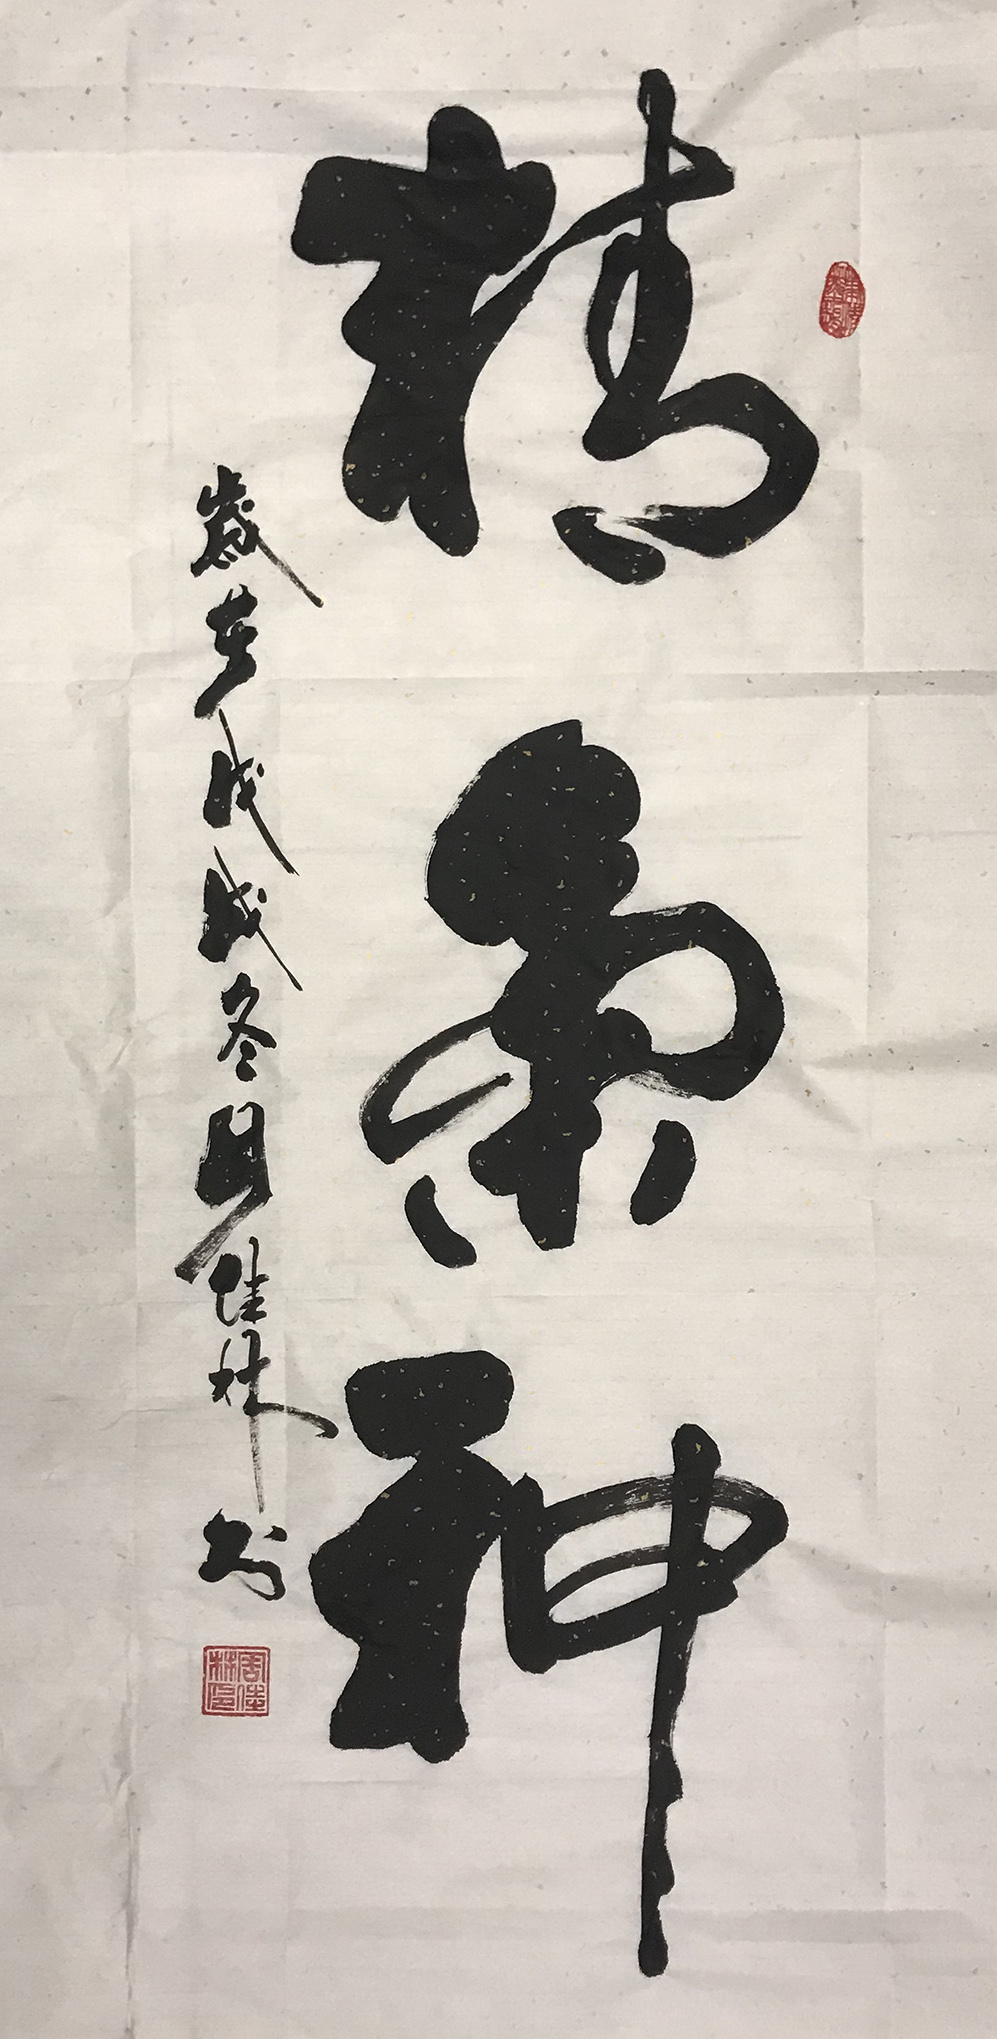 精氣神
歲在戊戌冬周佳林书
周佳林印